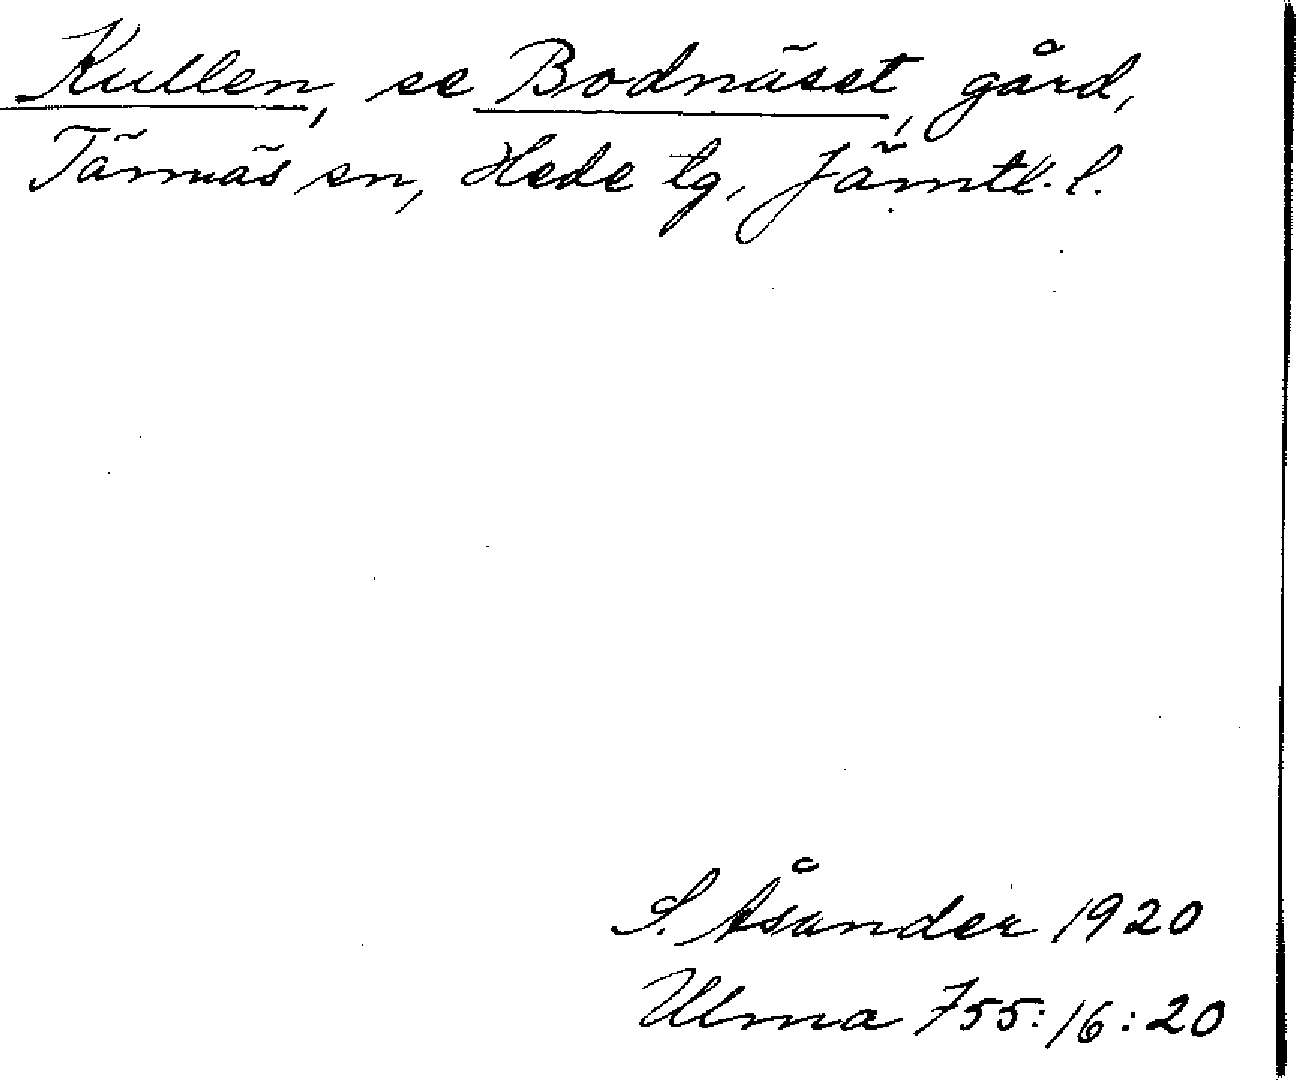 Kullen, se Bodnäset, gård,
Tännäs sn, Hede tg, Jämtl. l.
S. Åsander 1920
Ulma 755:16:20